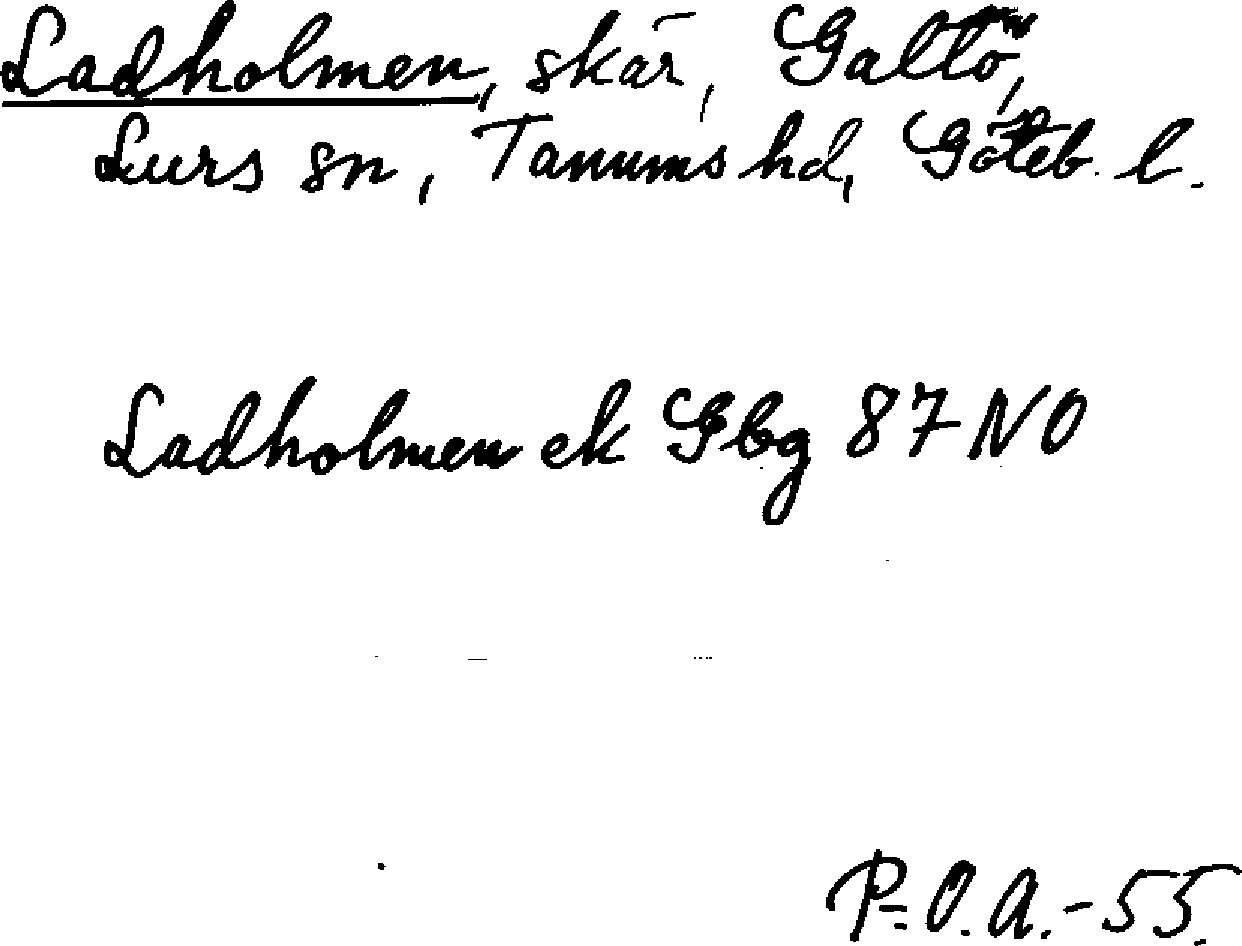 Ladholmen, skär, Galtö,
Lurs sn, Tanums hd, Göteb. l.
Ladholmen ek Gbg 87 NO
P-O.A.-55.